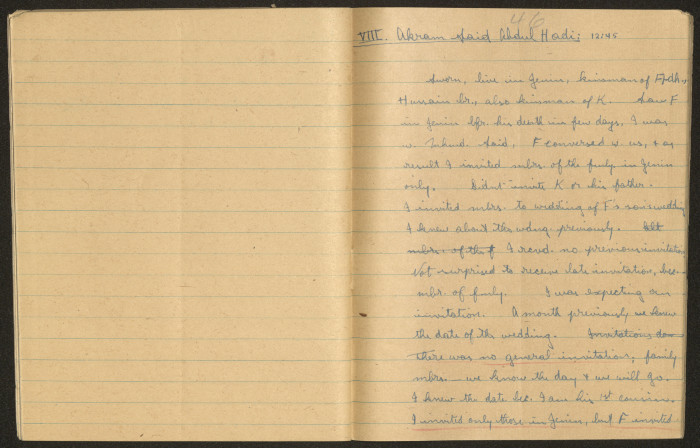 46
VIII. Akram Said Abdul Hadi: 12:45
Sworn, live in Jenin, kinsman of F,
Hussain br., also kinsman of K. Saw F
in Jenin bfr. his death in few days. I was
w. Said. F conversed w. us, & as
result I invited mbrs. of the fmly in Jenin
only. Didn't invite K or his father.
I invited mbrs. to wedding of F's son's wedding
I knew about ths wdng previously.
mbrs. of the f I recvd. no previous invitation
Not surprised to receive late invitation, bec.
mbr. of fmly. I was expecting an
invitation. A month previously we knew
the date of ths wedding. Invitations
there was no general invitations; family
mbrs — we know the day & we will go.
I knew the date bec. I am his 1st cousin.
I invited only those in Jenin, but F invited